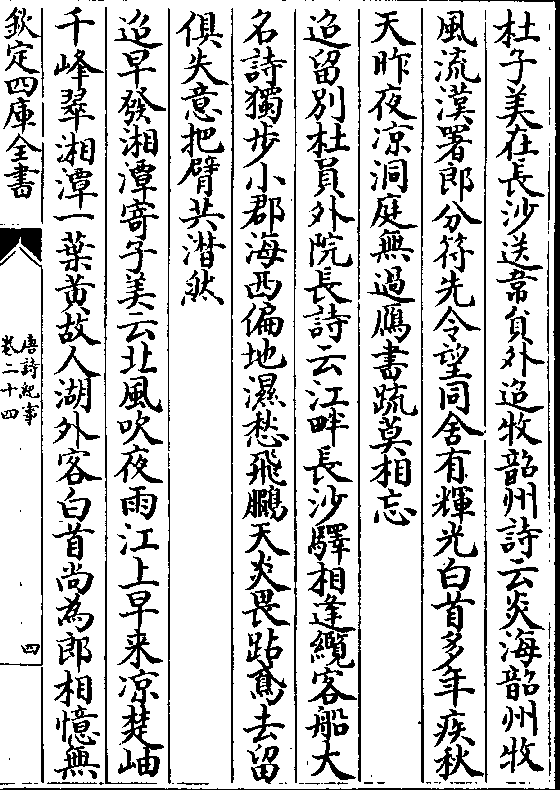 杜子美在長沙送韋員外迢牧韶州詩云炎海韶州牧
風流漢署郎分符先令望同舍有輝光白首多年疾秋
天昨夜凉洞庭無過鴈書䟽莫相忘
迢留別杜員外院長詩云江畔長沙驛相逢纜客船大
名詩獨步小郡海西偏地濕愁飛鵩天炎畏跕鳶去留
俱失意把臂共潸然
迢早發湘潭寄子美云北風吹夜雨江上早来凉楚岫
千峰翠湘潭一葉黄故人湖外客白首尚為郎相憶無
欽定四庫全書
唐詩紀事
卷二十四
四